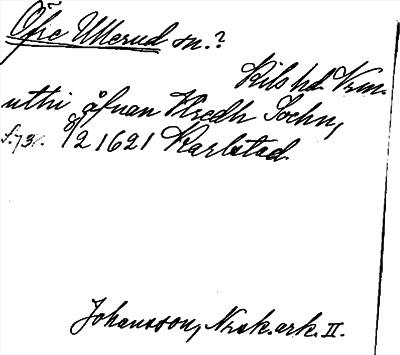 Öfre Ullerud sn.?
Kils hd Vrm.
uthi åfuan Hredh Sochn,
f. 73. 8/2 1621 Karlstad.
Johansson, Nrsk. ark. II.